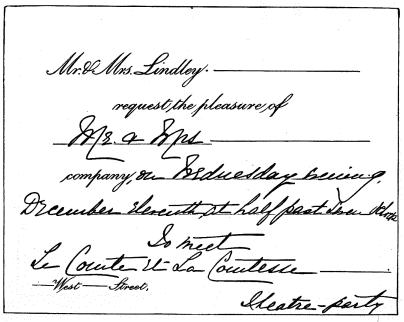 Mr. & Mrs. Lindley.
request, the pleasure, of
Mr. & Mrs
company, on Wednesday evening,
December eleventh at half past seven o'clock
To meet
Le Comte et La Comtesse
West Street.
Theatre-party